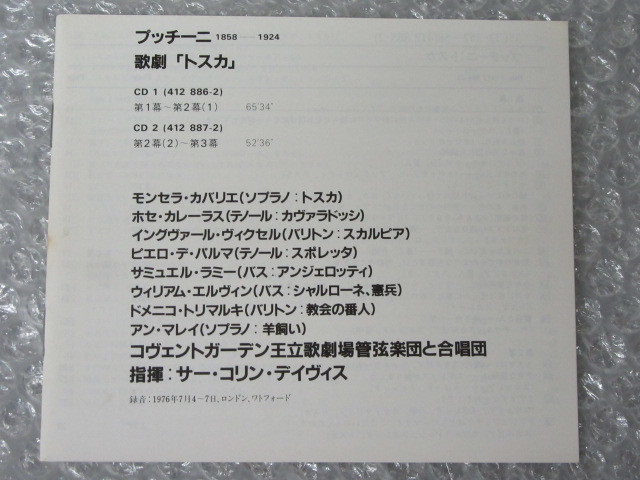 プッチーニ 1858——1924
歌劇「トスカ」
CD 1 (412 886-2)
第1幕〜第2幕(1) 65'34"
CD 2 (412 887-2)
第2幕(2)〜第3幕 52'36"
モンセラ・カバリエ(ソプラノ:トスカ)
ホセ・カレーラス(テノール:カヴァラドッシ)
イングヴァール・ヴィクセル(バリトン:スカルピア)
ピエロ・デ・パルマ(テノール:スポレッタ)
サミュエル・ラミー(バス:アンジェロッティ)
ウィリアム・エルヴィン(バス:シャルローネ、憲兵)
ドメニコ・トリマルキ(バリトン:教会の番人)
アン・マレイ(ソプラノ:羊飼い)
コヴェントガーデン王立歌劇場管弦楽団と合唱団
指揮:サー・コリン・デイヴィス
録音:1976年7月4〜7日、ロンドン、ワトフォード